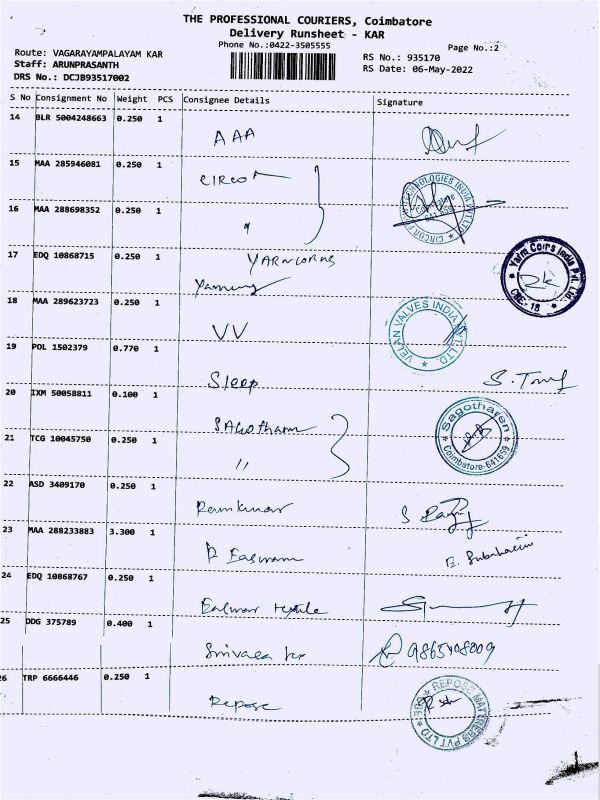 THE PROFESSIONAL COURIERS, Coimbatore
Delivery Runsheet - KAR
Phone No.:0422-3505555
Page No.:2
Route: VAGARAYAMPALAYAM KAR
Staff: ARUNPRASANTH
DRS No.: DCJB93517002
RS No.: 935170
RS Date: 06-May-2022
S No Consignment No Weight PCS Consignee Details Signature
14 BLR 5004248663 0.250 1
AAA
15 MAA 285946081 0.250 1
CIRCOR
16 MAA 288698352 0.250 1
"
17 EDQ 10868715 0.250 1
YARNCORNS
Yarn Coirs India Pvt. Ltd.
CBE-18
18 MAA 289623723 0.250 1
VV
VELAN VALVES INDIA PVT. LTD.
19 POL 1502379 0.770 1
Sleep
20 IXM 50058811 0.100 1
SAGotharen
Sagotharen
Coimbatore-641659
21 TCG 10045750 0.250 1
"
22 ASD 3409170 0.250 1
Ramkumar
23 MAA 288233883 3.300 1
P Easwaran
24 EDQ 10868767 0.250 1
Textile
25 DDG 375789 0.400 1
9865408009
26 TRP 6666446 0.250 1
Repose
REPOSE MATTRESS PVT LTD